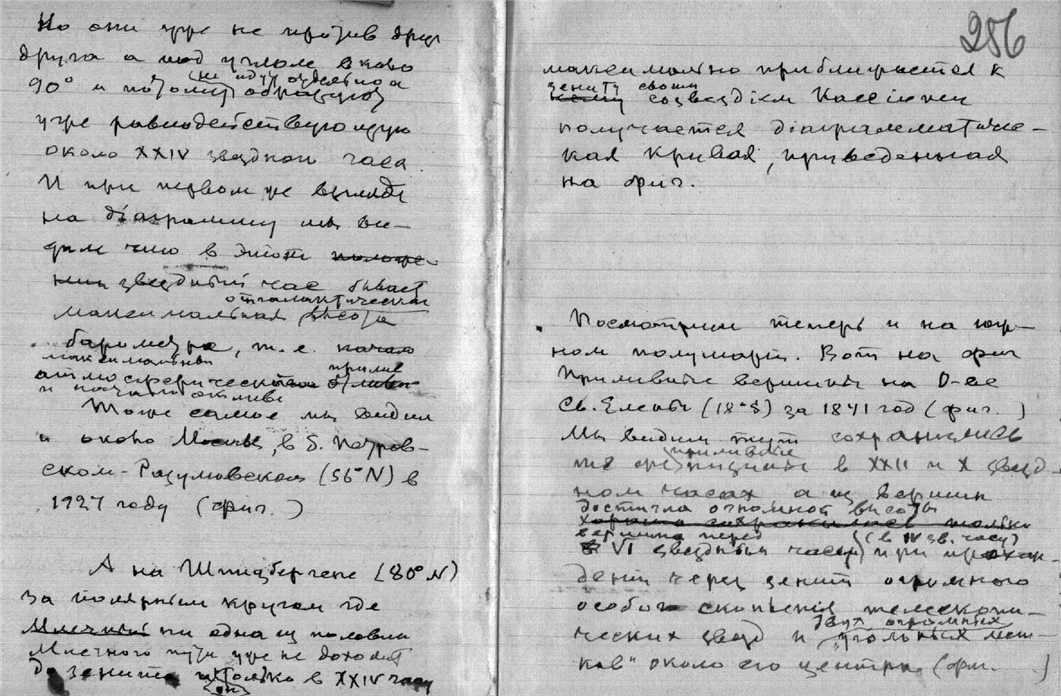 Но они уже не против друг
друга а под углом около
90° и потому не идут отдельно а образуют
уже равнодействующую
около XXIV звездного часа.
И при первом же взгляде
на діаграмму мы ви-
дим что в этот положе-
нии звездный час бывает
отгалактическая
максимальная высота
барометра, т. е. начало
максимальный прилив
атмосферическ
и начало отлива
Тоже самое мы видим
и около Москвы, в б. Петров-
ском-Разумовском (56°N) в
1927 году (фиг. )
А на Шпицбергене (80°N)
за полярным кругом где
Млечный ни одна из половин
Млечного пути уже не доходит
до зенита и только в XXIV часу
он
286
максимально приближается к
зениту своим
созвездіем Кассіопеи
получается діаграмматиче-
ская кривая, приведенная
на фиг.
Посмотрим теперь и на юж-
ном полушаріи. Вот на фиг
Приливные вершины на О-ве
Св. Елены (18°S) за 1841 год (фиг. )
Мы видим тут сохранились
приливные
те же в XXII и X звезд
ном часах, а из вершин
достигла огромной высоты
хорошо сохранились только
вершина перед (в IV зв. часу)
VI звездным часом при прохож-
дении через зенит огромного
особого скопленія телескопи-
двух огромных
ческих звезд и „угольных меш-
ков" около его центра (фиг. )